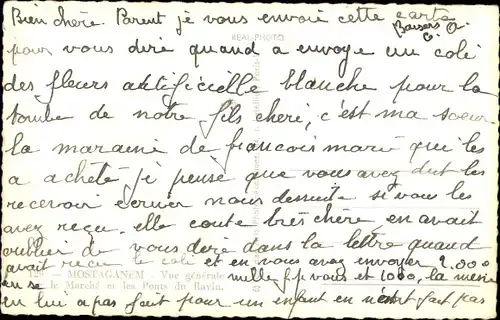 Bien chère Parent je vous envoie cette carte
Baisers
pour vous dire quand a envoye un coli
REAL-PHOTO
des fleurs aktificielle blanche pour la
tombe de notre fils cheri, c'est ma soeur
la maraine de francois marie qui les
a acheté je pense que vous avez dut les
recevoir ecrivier nous dessuite si vous les
avez reçu. elle coute très chère en avait
oublier de vous dire dans la lettre quand
avait reçu le coli et en vous avez envoyer 2.000
MOSTAGANEM - Vue générale
mille f.p vous et 1000, la
le Marché et les Ponts du Ravin.
en lui a pas fait pour un enfant en fait pas